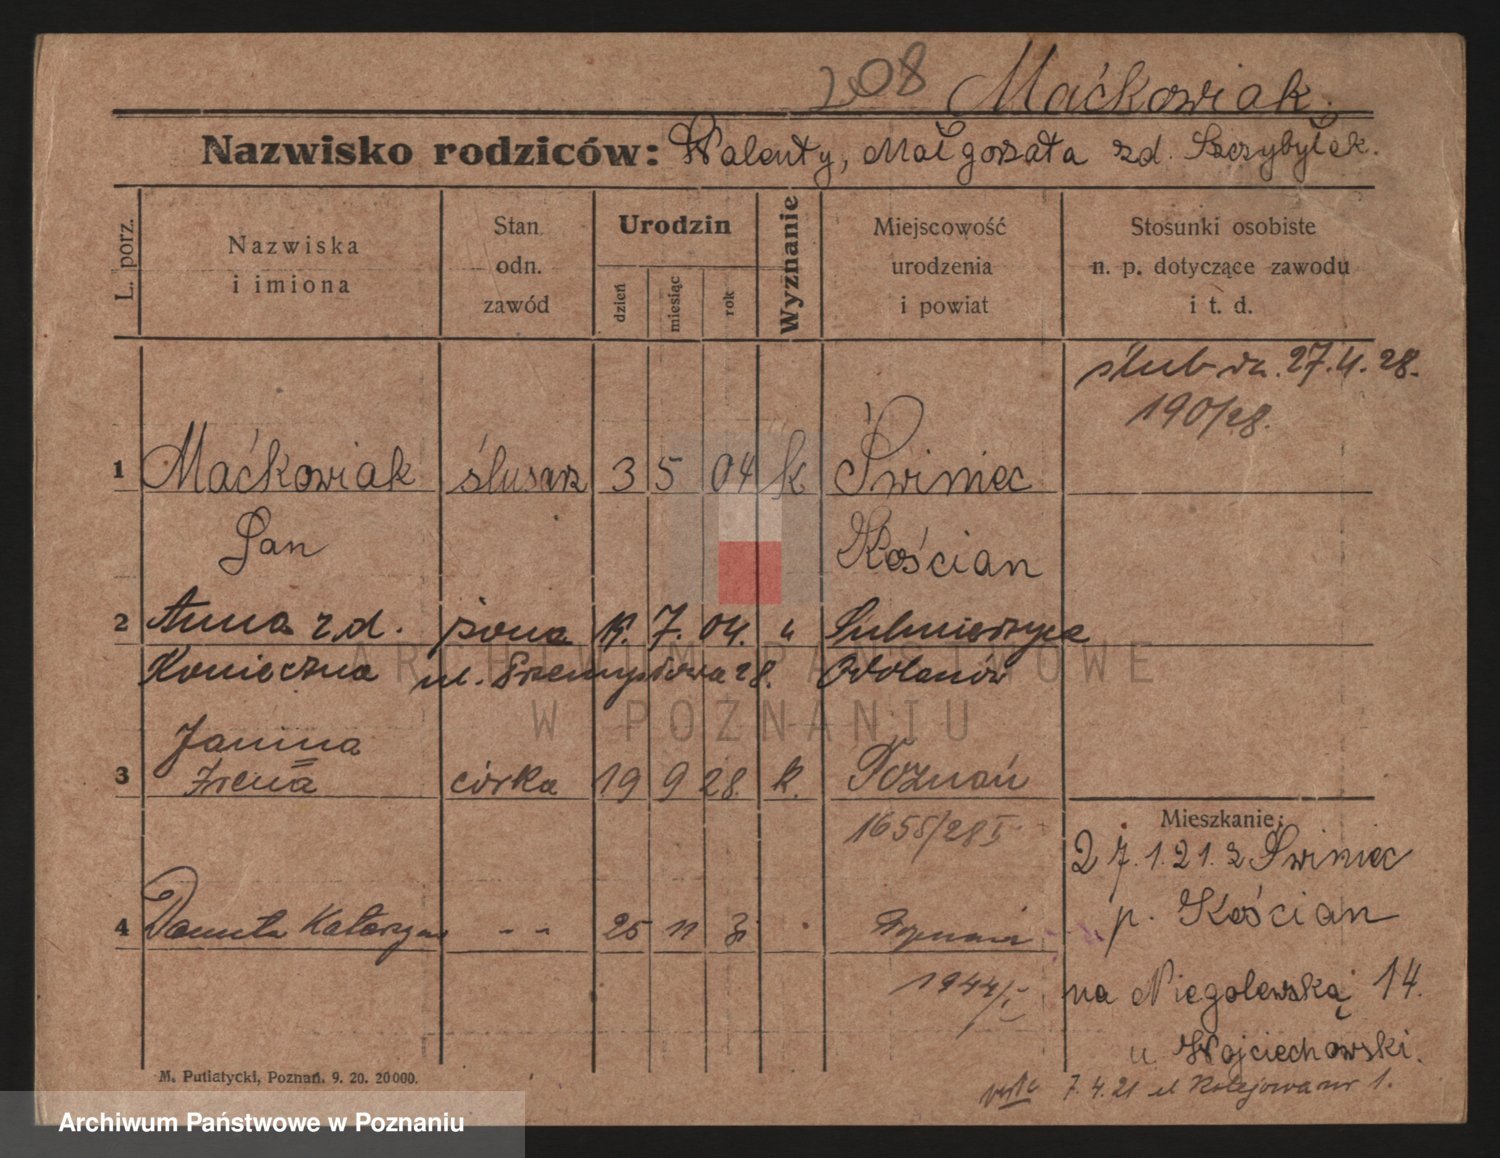 208 Maćkowiak.
Nazwisko rodziców: Walenty, Małgorzata zd. Szczybyłek.
L. porz.
Nazwiska i imiona
Stan odn. zawód
Urodzin
dzień
miesiąc
rok
Wyznanie
Miejscowość urodzenia i powiat
Stosunki osobiste n. p. dotyczące zawodu i t. d.
ślub dn. 27.4.28.
190/28.
1 Maćkowiak ślusarz 3 5 04 k Świniec
Jan Kościan
2 Anna z d. żona 7. 04. " Sulmierzyce
Konieczna ul. Przemysłowa 28. Odolanów
Janina
3 Irena córka 19 9 28. k. Poznań
1658/28 I
Mieszkanie:
27.1.21. z Świniec
p. Kościan
4 Danuta Katarzyna - - 25 11 Poznań
1944/I
na Niegolewską 14.
u Wojciechowski.
7.4.21 ul Kolejowa nr 1.
M. Putiatycki, Poznań. 9. 20. 20000.
ARCHIWUM PAŃSTWOWE
W POZNANIU
Archiwum Państwowe w Poznaniu